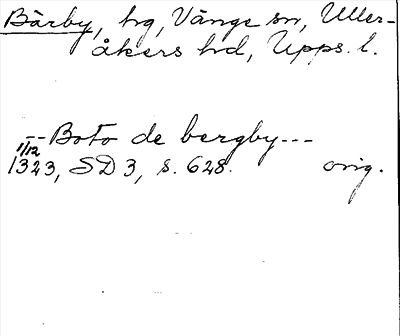 Bärby, hg, Vänge sn, Uller-
åkers hd, Upps. l.
-- Boto de bergby ---
1/12
1323, SD 3, s. 628. orig.